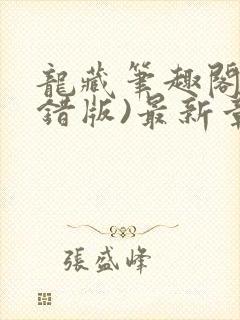 龍藏筆趣閣
錯版)最新章
張盛峰